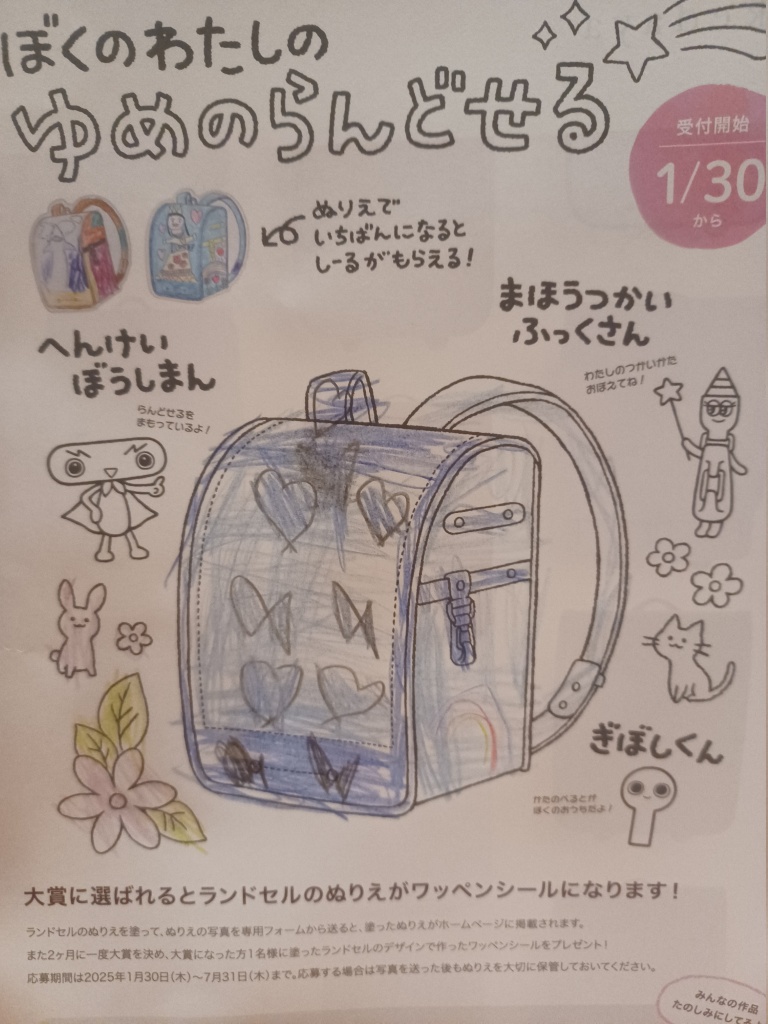 ぼくのわたしの
ゆめのらんどせる
受付開始
1/30
から
ぬりえで
いちばんになると
しーるがもらえる！
まほうつかい
ふっくさん
わたしのつかいかた
おぼえてね！
へんけい
ぼうしまん
らんどせるを
まもっているよ！
ぎぼしくん
かたのべるとが
ぼくのおうちだよ！
大賞に選ばれるとランドセルのぬりえがワッペンシールになります！
ランドセルのぬりえを塗って、ぬりえの写真を専用フォームから送ると、塗ったぬりえがホームページに掲載されます。
また2ヶ月に一度大賞を決め、大賞になった方1名様に塗ったランドセルのデザインで作ったワッペンシールをプレゼント！
応募期間は2025年1月30日(木)～7月31日(木)まで。応募する場合は写真を送った後もぬりえを大切に保管しておいてください。
みんなの作品
たのしみにしてる